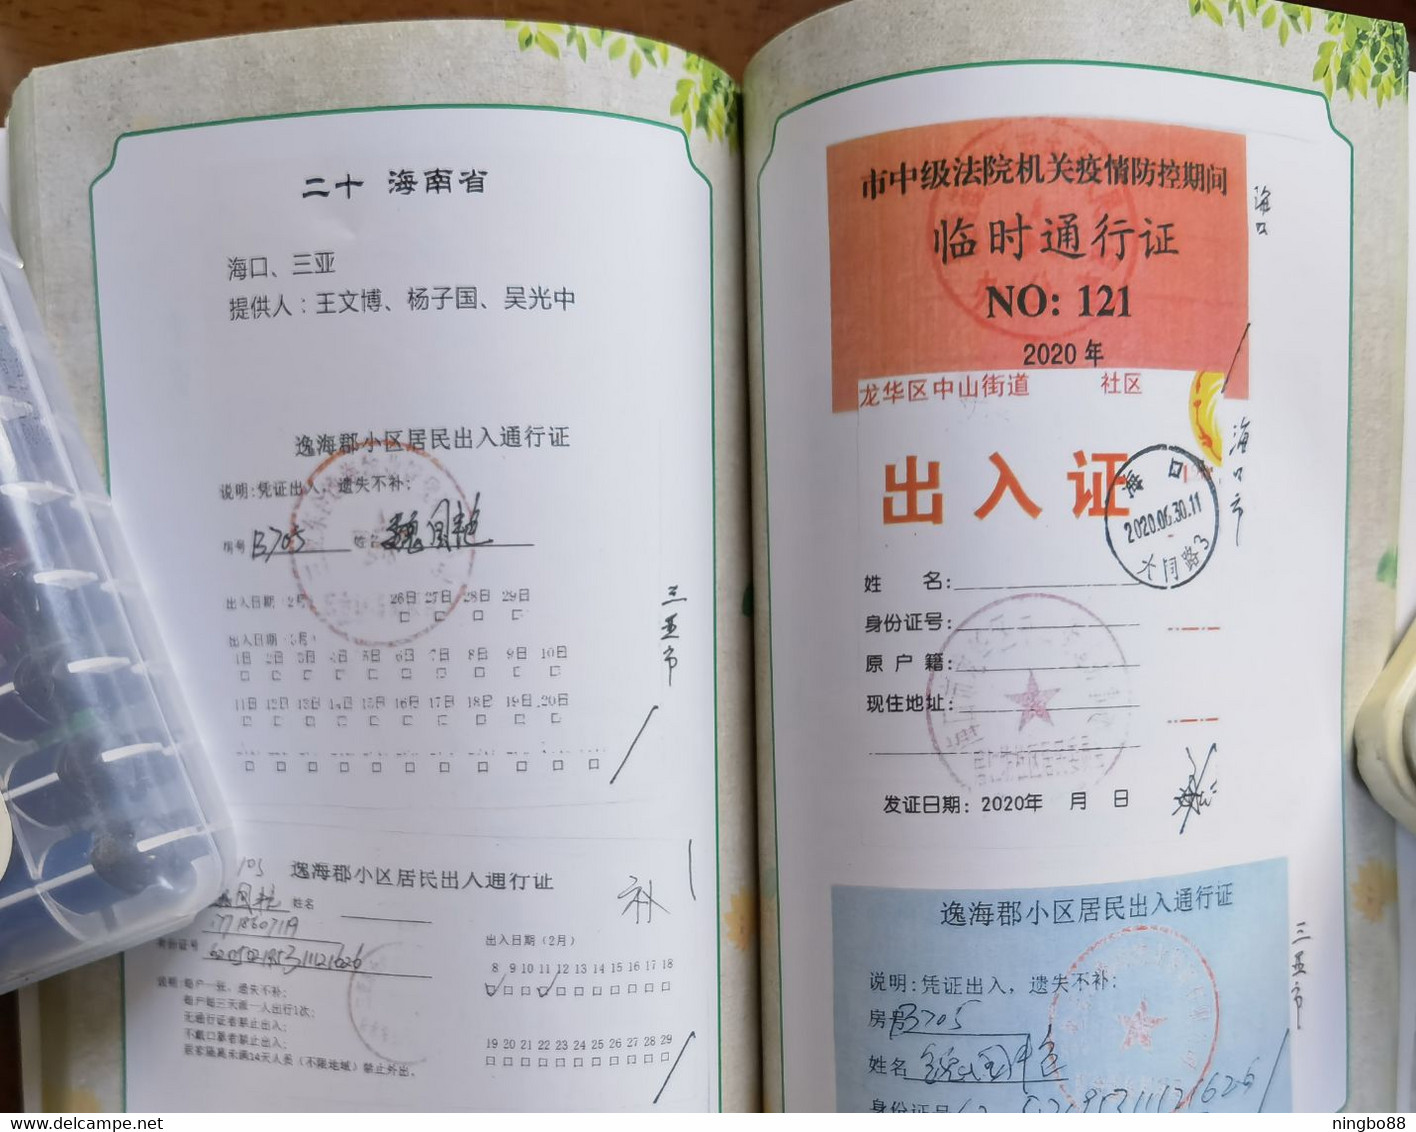 二十 海南省
海口、三亚
提供人：王文博、杨子国、吴光中
逸海郡小区居民出入通行证
说明:凭证出入，遗失不补；
房号 B705 姓名
出入日期：2月
26日 27日 28日 29日
出入日期：3月
1日 2日 3日 4日 5日 6日 7日 8日 9日 10日
11日 12日 13日 14日 15日 16日 17日 18日 19日 20日
三亚市
逸海郡小区居民出入通行证
补
姓名
身份证号
出入日期（2月）
8 9 10 11 12 13 14 15 16 17 18
19 20 21 22 23 24 25 26 27 28 29
说明：每户一张，遗失不补；
每户每三天派一人出行1次；
无通行证者禁止出入；
不戴口罩者禁止出入；
居家隔离未满14天人员（不限地域）禁止外出。
市中级法院机关疫情防控期间
临时通行证
NO: 121
2020 年
海口
龙华区中山街道 社区
出入证
海口
2020.06.30.11
海口市
姓 名:
身份证号:
原 户 籍:
现住地址:
发证日期：2020年 月 日
逸海郡小区居民出入通行证
说明:凭证出入，遗失不补；
房号 B705
姓名
身份证号
三亚市
Delcampe.net
ningbo88